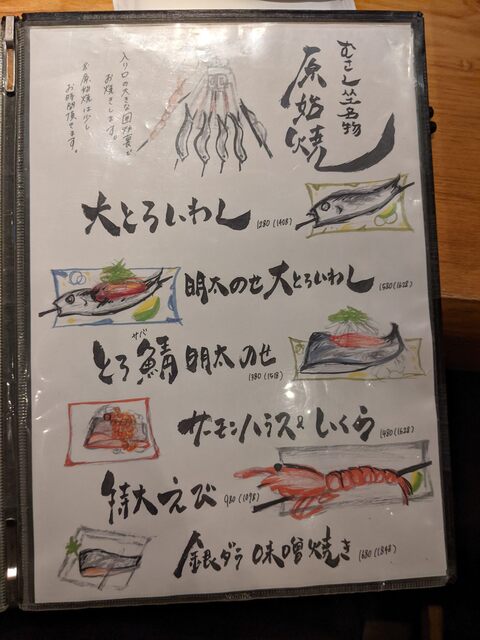 むさし坐名物
原始焼
入り口の大きな囲炉裏で
お焼きします。
※原始焼は少し
お時間頂きます。
大とろいわし 1280(1408)
明太のせ大とろいわし
サバ
とろ鯖明太のせ 1380(1518)
サーモンハラス&いくら 1480(1628)
特大えび
銀ダラ味噌焼き 1680(1848)